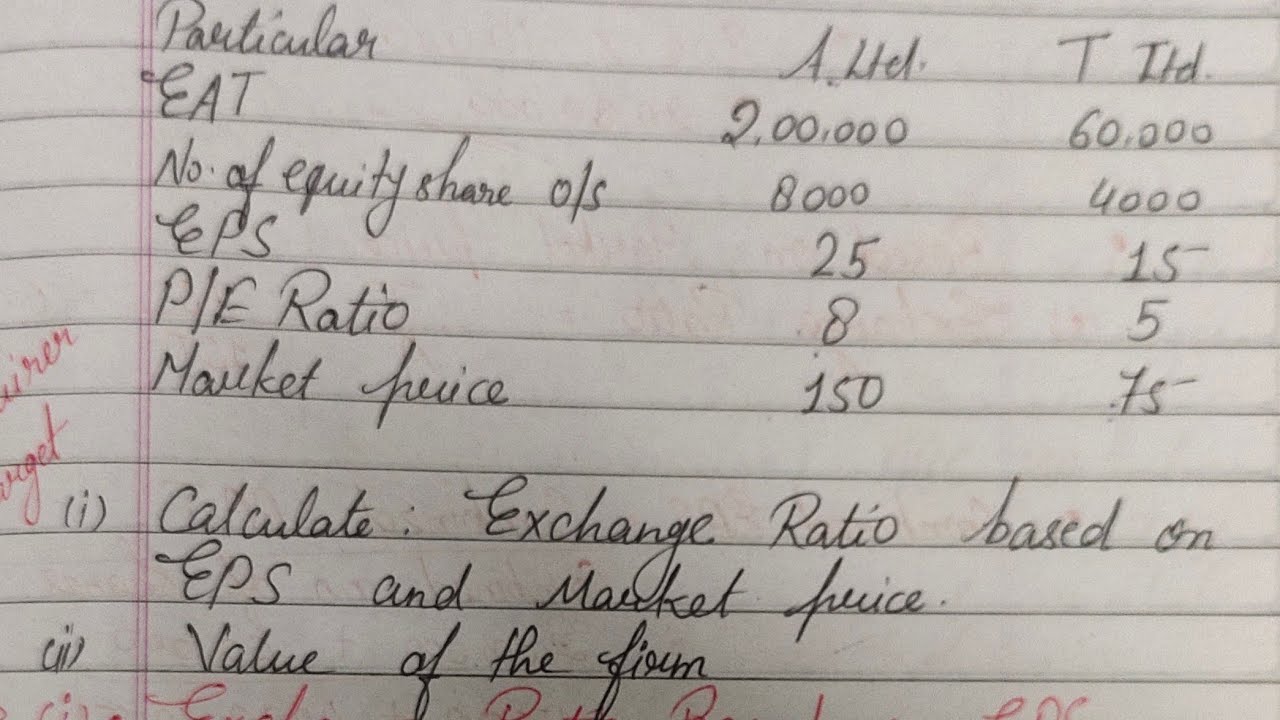 Particular A. Ltd. T Ltd.
EAT 2,00,000 60,000
No. of equity share o/s 8000 4000
EPS 25 15
P/E Ratio 8 5
Market price 150 75
(i) Calculate: Exchange Ratio based on
EPS and Market price.
(ii) Value of the firm